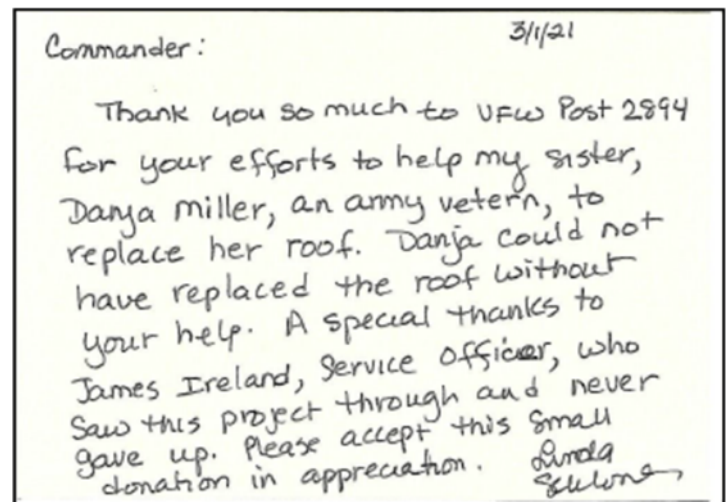 3/1/21
Commander:
Thank you so much to VFW Post 2894
for your efforts to help my sister,
Danja Miller, an army vetern, to
replace her roof. Danja could not
have replaced the roof without
your help. A special thanks to
James Ireland, Service Officer, who
saw this project through and never
gave up. Please accept this small
donation in appreciation. Linda